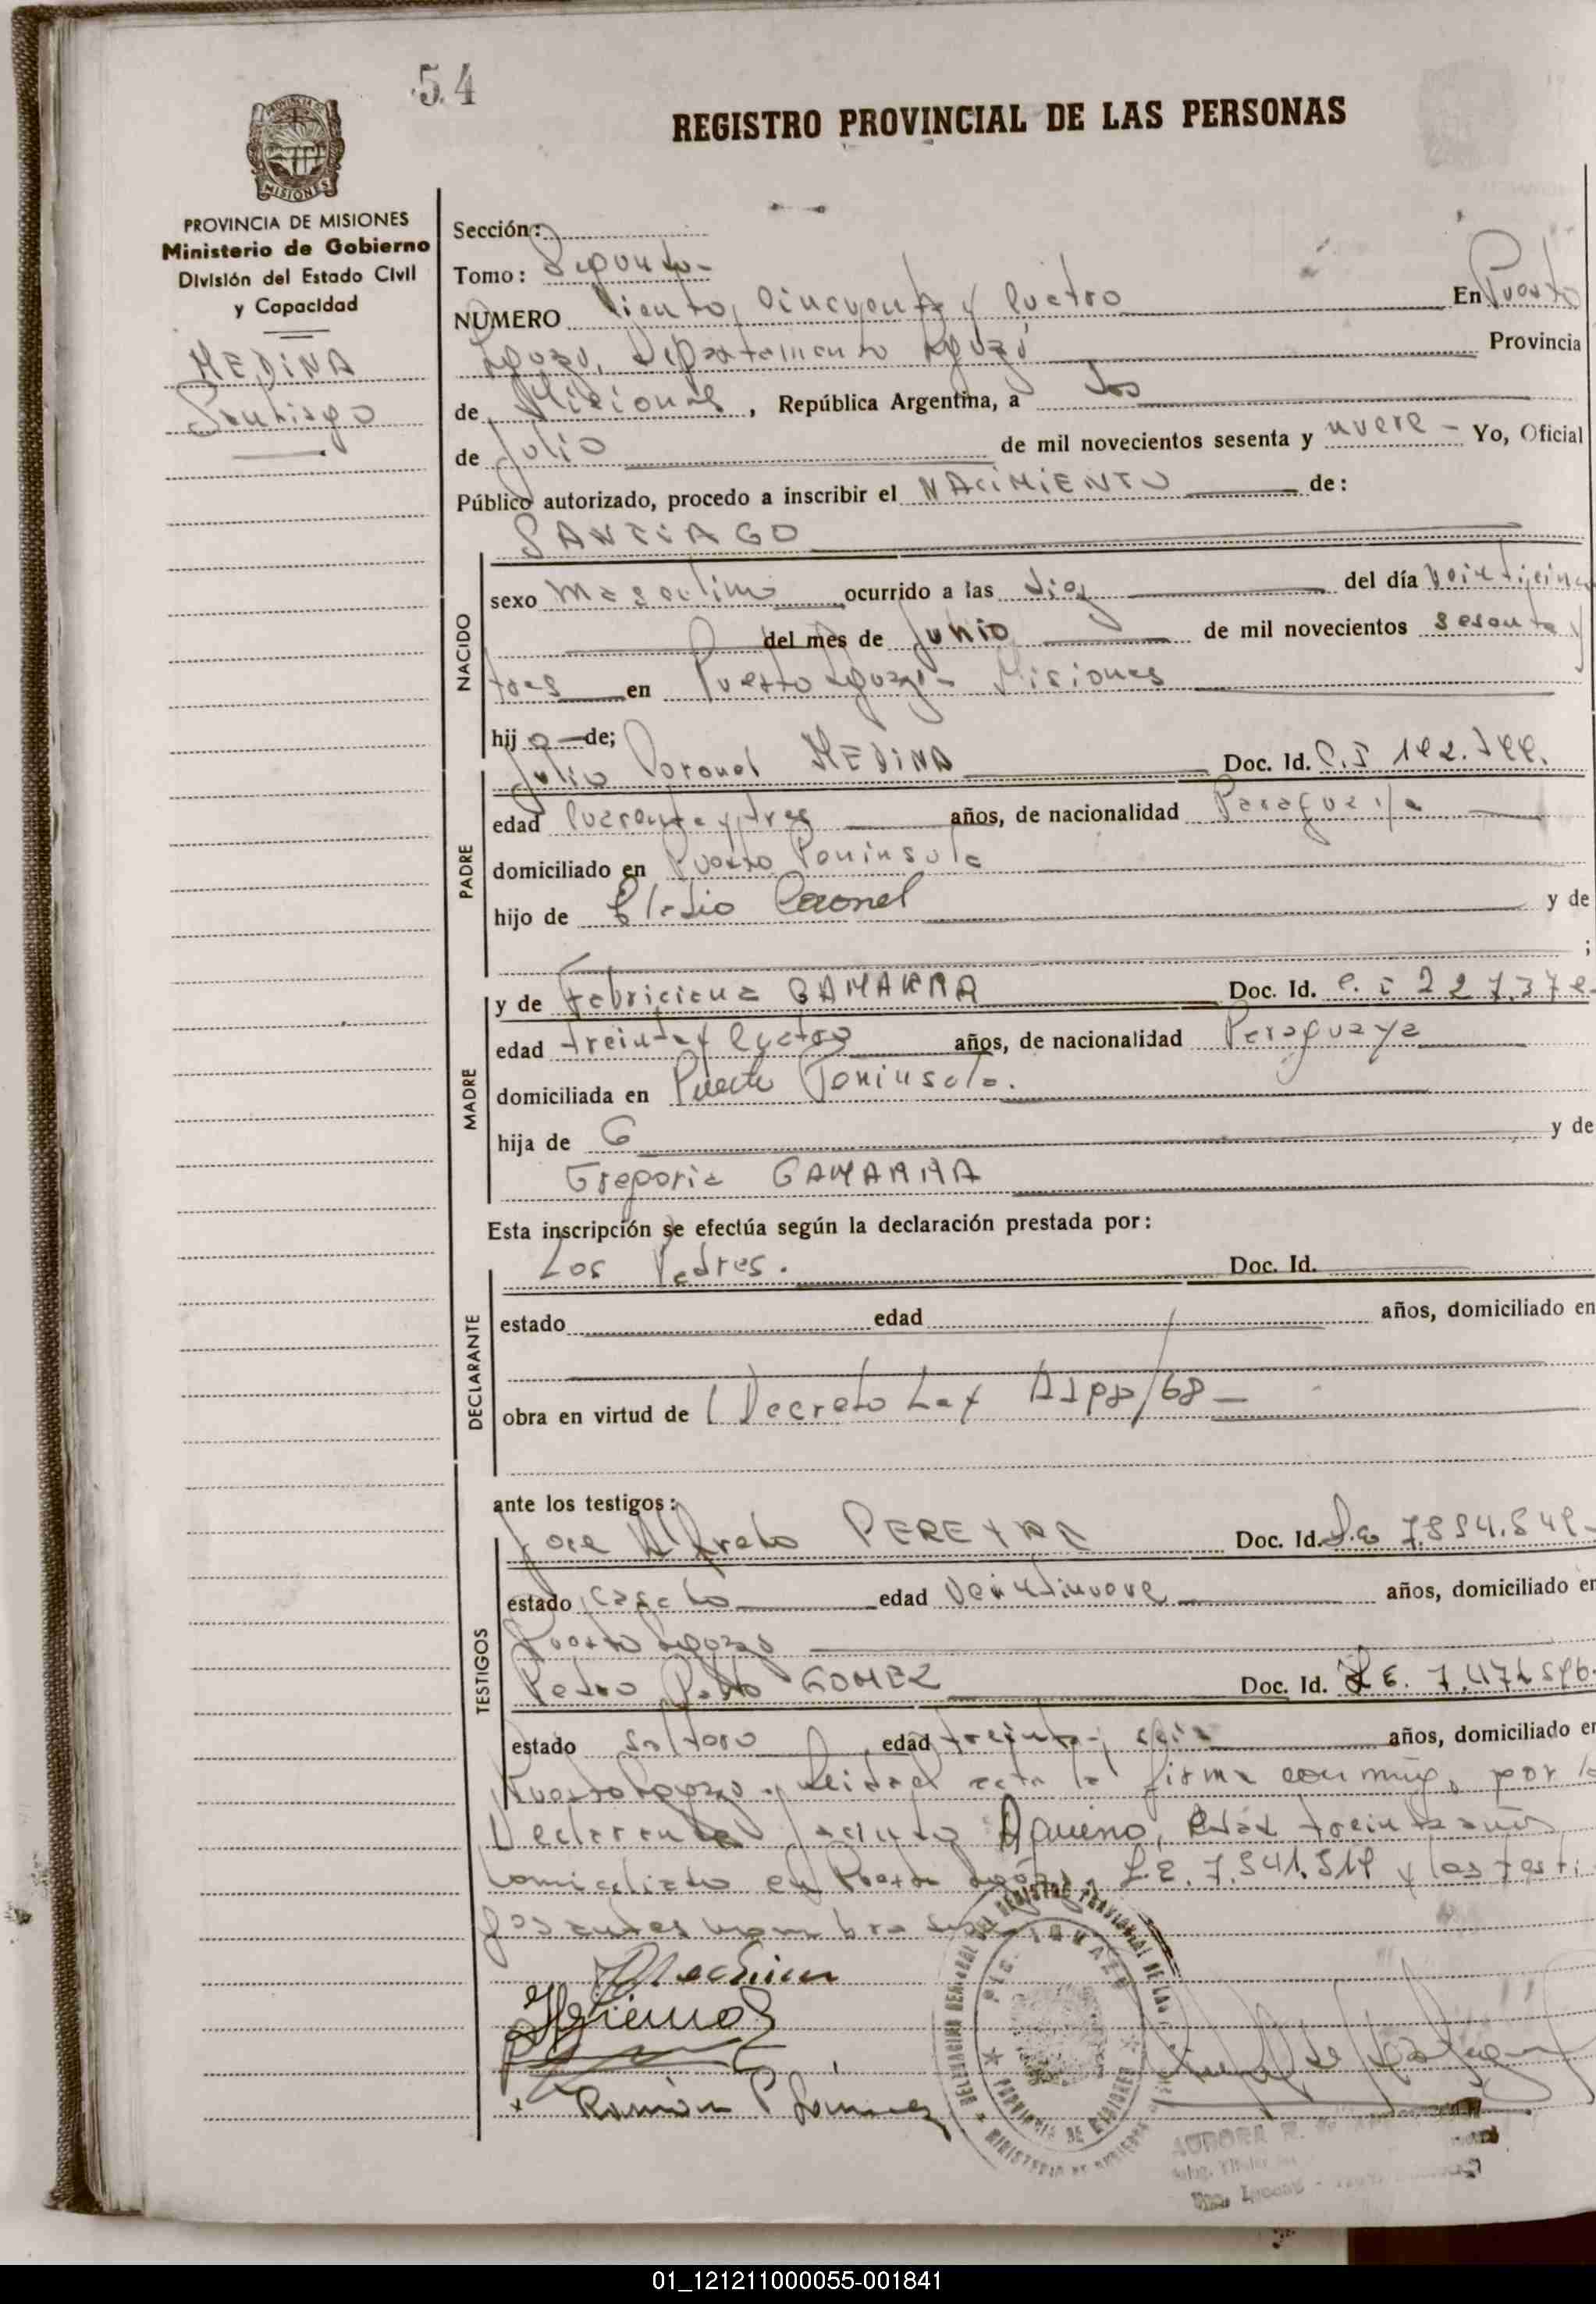 54
REGISTRO PROVINCIAL DE LAS PERSONAS
PROVINCIA DE MISIONES
Ministerio de Gobierno
División del Estado Civil
y Capacidad
MEDINA
Santiago
Sección:
Tomo: Segundo-
NUMERO Ciento Cincuenta y Cuatro En Puerto
Iguazú, Departamento Iguazú Provincia
de Misiones, República Argentina, a dos
de Julio de mil novecientos sesenta y nueve - Yo, Oficial
Público autorizado, procedo a inscribir el NACIMIENTO de:
SANTIAGO
NACIDO
sexo Masculino ocurrido a las diez del día Veinticinco
del mes de Junio de mil novecientos sesenta y
tres en Puerto Iguazú - Misiones
hijo de;
PADRE
Julio Coronel MEDINA Doc. Id. C.I
edad Cuarenta y tres años, de nacionalidad Paraguaya
domiciliado en Puerto Peninsula
hijo de Eladio Coronel y de
;
MADRE
y de Fabriciana GAMARRA Doc. Id. C.I
edad treinta y Cuatro años, de nacionalidad Paraguaya
domiciliada en Puerto Peninsula.
hija de G y de
Gregoria GAMARRA
Esta inscripción se efectúa según la declaración prestada por:
DECLARANTE
Los Padres. Doc. Id.
estado edad años, domiciliado en
obra en virtud de Decreto Ley /68-
ante los testigos:
TESTIGOS
Jose Alfredo PEREYRA Doc. Id. L.E
estado Casado edad Veintinueve años, domiciliado en
Puerto Iguazú
Pedro GOMEZ Doc. Id. L.E.
estado soltero edad treinta y seis años, domiciliado en
Puerto Iguazú. Leida el acta la firma conmigo, por la
Declarante Jacinto Aquino, Edad treinta años
domiciliado en Puerto Iguazú, L.E. 7.541.519 y los testi
gos antes nombrados
Ramón
PROVINCIA DE MISIONES
AURORA
01_121211000055-001841